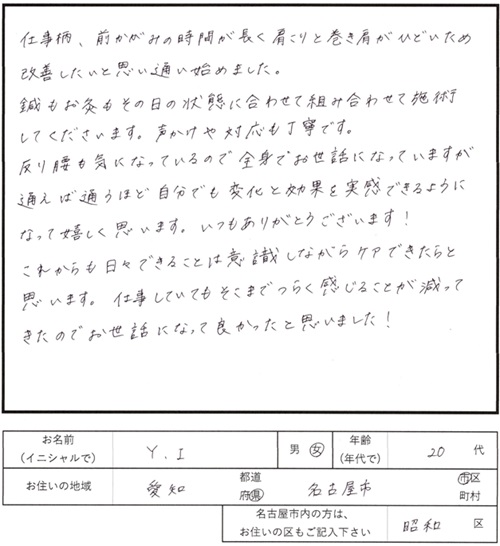 仕事柄、前かがみの時間が長く肩こりと巻き肩がひどいため
改善したいと思い通い始めました。
鍼もお灸もその日の状態に合わせて組み合わせて施術
してくださいます。声かけや対応も丁寧です。
反り腰も気になっているので全身でお世話になっていますが
通えば通うほど自分でも変化と効果を実感できるように
なって嬉しく思います。いつもありがとうございます！
これからも日々できることは意識しながらケアできたらと
思います。仕事していてもそこまでつらく感じることが減って
きたのでお世話になって良かったと思いました！
お名前
(イニシャルで) Y.I 男 女 年齢
(年代で) 20 代
お住いの地域 愛知 都道
府県 名古屋市 市区
町村
名古屋市内の方は、
お住いの区もご記入下さい 昭和 区